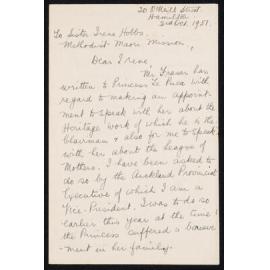 20 O'Neill Street
Hamilton
2nd Oct. 1951.
To Sister Irene Hobbs.
Methodist Maori Mission,
Dear Irene,
Mr Fraser has
written to Princess Te Puea with
regard to making an appoint-
ment to speak with her about the
Heritage work of which he is the
Chairman & also for me to speak
with her about the League of
Mothers. I have been asked to
do so by the Auckland Provincial
Executive of which I am a
Vice-President. I was to do so
earlier this year at the time
the Princess suffered a bereave-
ment in her family.